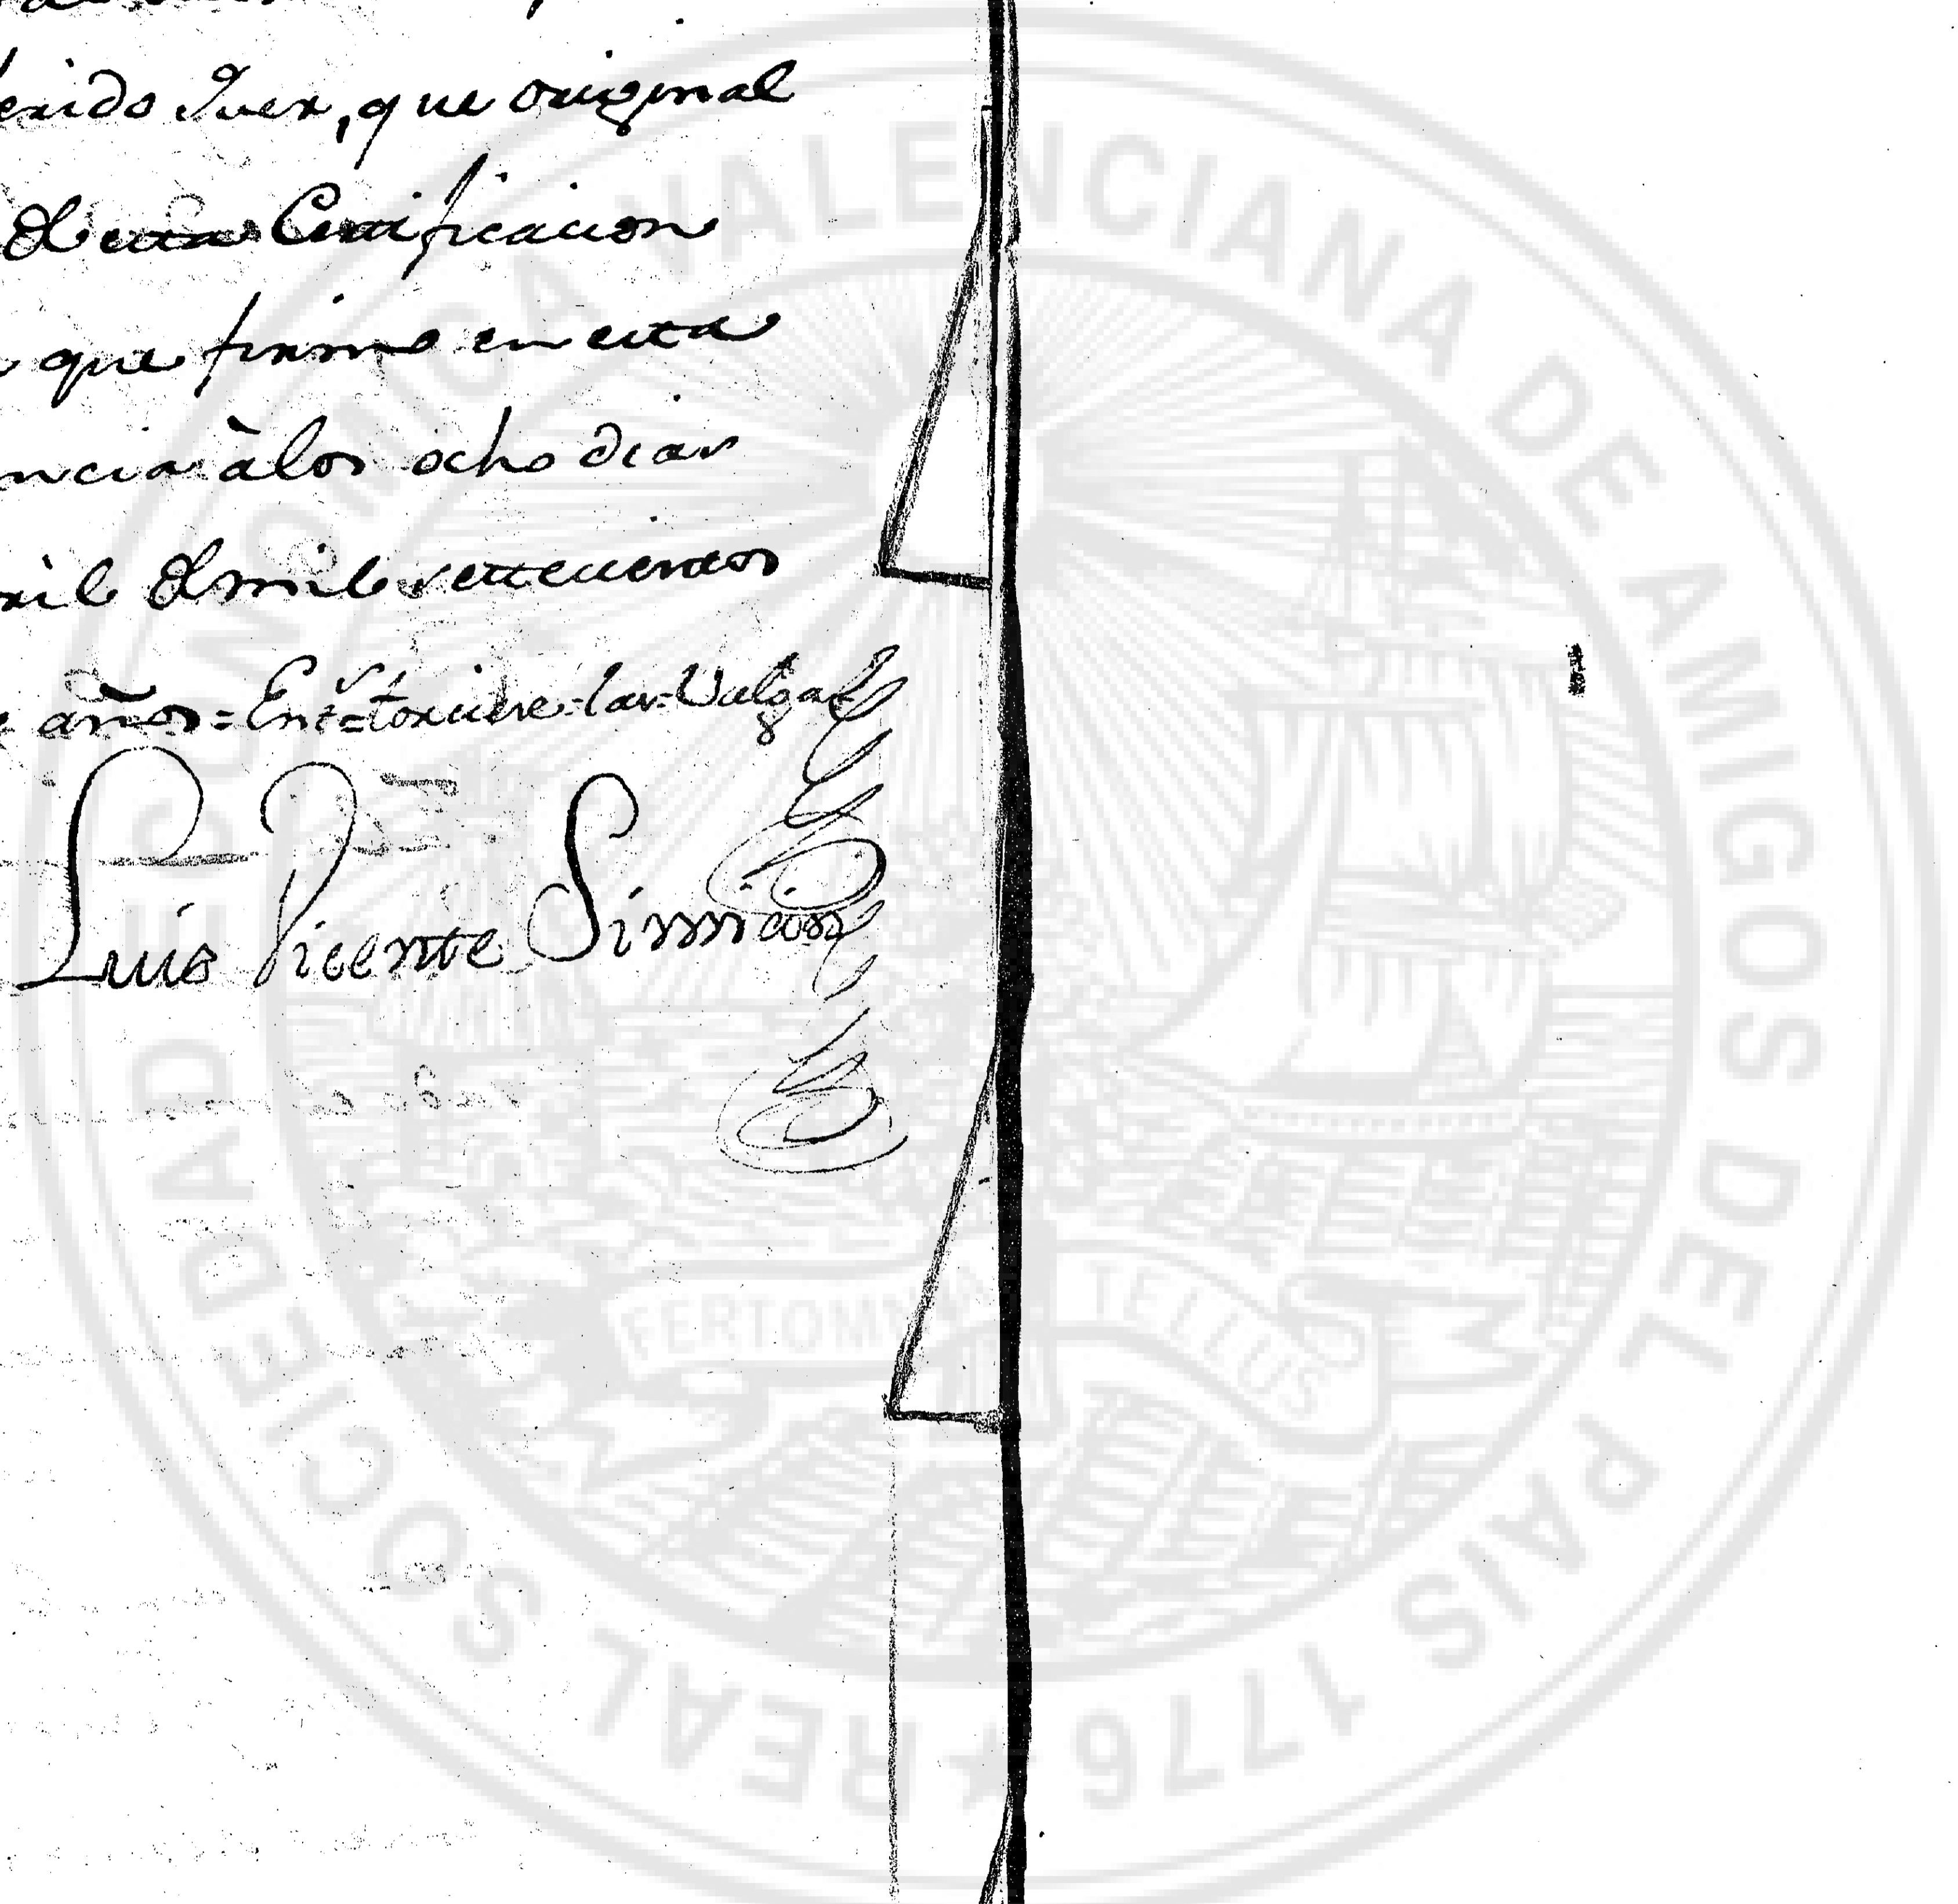 erido Juez, que original
de esta Certificacion
que firmo en esta
ncia à los ocho dias
ril de mil setecientos
años = Ent.s =
Luis Vicente Simicon
REAL SOCIEDAD ECONOMICA VALENCIANA DE AMIGOS DEL PAIS 1776
FERTOM TELLUS